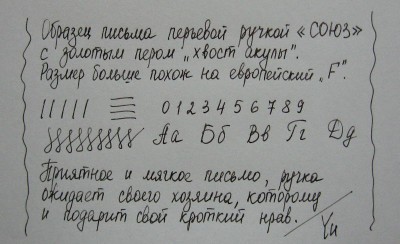 Образец письма перьевой ручкой «СОЮЗ»
с золотым пером „хвост акулы".
Размер больше похож на европейский „F".
0 1 2 3 4 5 6 7 8 9
Аа Бб Вв Гг Дд
Приятное и мягкое письмо, ручка
ожидает своего хозяина, которому
и подарит свой кроткий нрав.